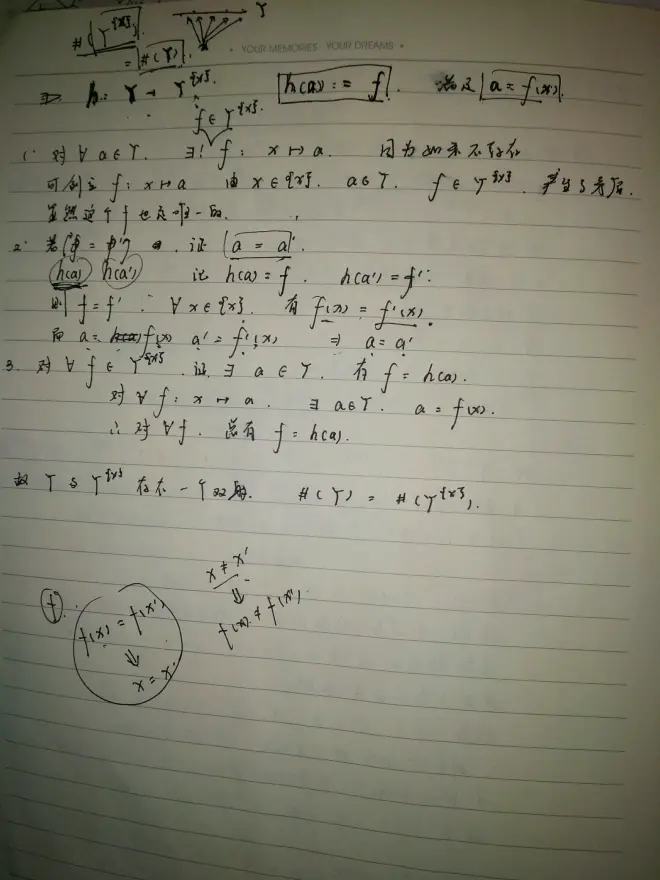 #(Y^{x}) Y
= #(Y)
• YOUR MEMORIES · YOUR DREAMS •
⇒ h: Y → Y^{x}. h(a) := f. 满足 a = f(x).
f ∈ Y^{x}.
1. 对 ∀ a ∈ Y. ∃! f: x ↦ a. 因为如果不存在
可创立 f: x ↦ a 由 x ∈ {x}. a ∈ Y. f ∈ Y^{x}. 产生了矛盾.
显然这个 f 也是唯一的.
2. 若 证 a = a'.
h(a) h(a') 记 h(a) = f. h(a') = f'.
则 f = f' ∴ ∀ x ∈ {x}. 有 f(x) = f'(x).
而 a = f(x) a' = f'(x) ⇒ a = a'
3. 对 ∀ f ∈ Y^{x}. 证 ∃ a ∈ Y. 有 f = h(a).
对 ∀ f: x ↦ a. ∃ a ∈ Y. a = f(x).
∴ 对 ∀ f. 总有 f = h(a).
故 Y 与 Y^{x} 存在一个双射. #(Y) = #(Y^{x}).
f.
f(x) = f(x')
⇓
x = x'
x ≠ x'
⇓
f(x) ≠ f(x')